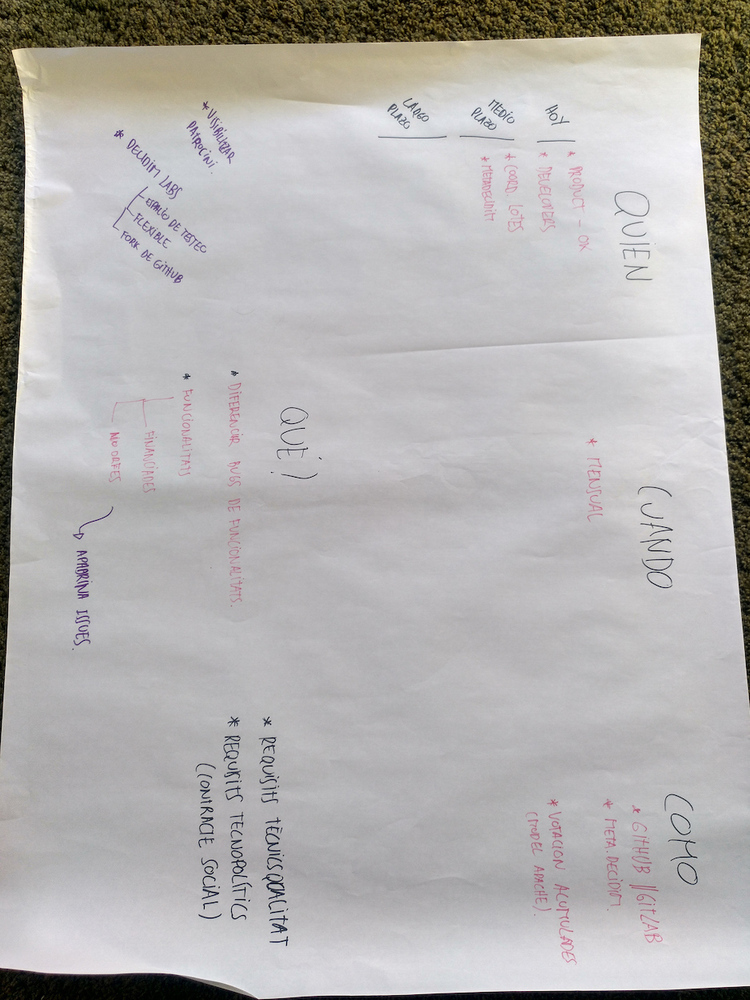 QUIEN
HOY
* PRODUCT - OK
* DEVELOPERS
MEDIO
PLAZO
* COORD. LOTES
* METADECIDIM
LARGO
PLAZO
CUANDO
* MENSUAL
COMO
* GITHUB // GITLAB
* META.DECIDIM.
* VOTACION ACUMULADES
(MODEL APACHE).
QUÈ?
* DIFERENCIR BUGS DE FUNCIONALITATS.
* FUNCIONALITATS
FINANÇADES
NO ORFES
APADRINA ISSUES.
* REQUISITS TÈCNICS QUALITAT
* REQUISITS TECNOPOLÍTICS
(CONTRACTE SOCIAL)
* VISIBILITZAR
PATROCINI.
* DECIDIM LABS
- ESPACIO DE TESTEO
- FLEXIBLE
- FORK DE GITHUB